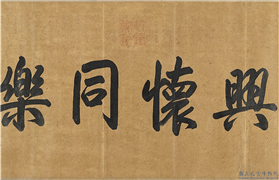 興懷同樂